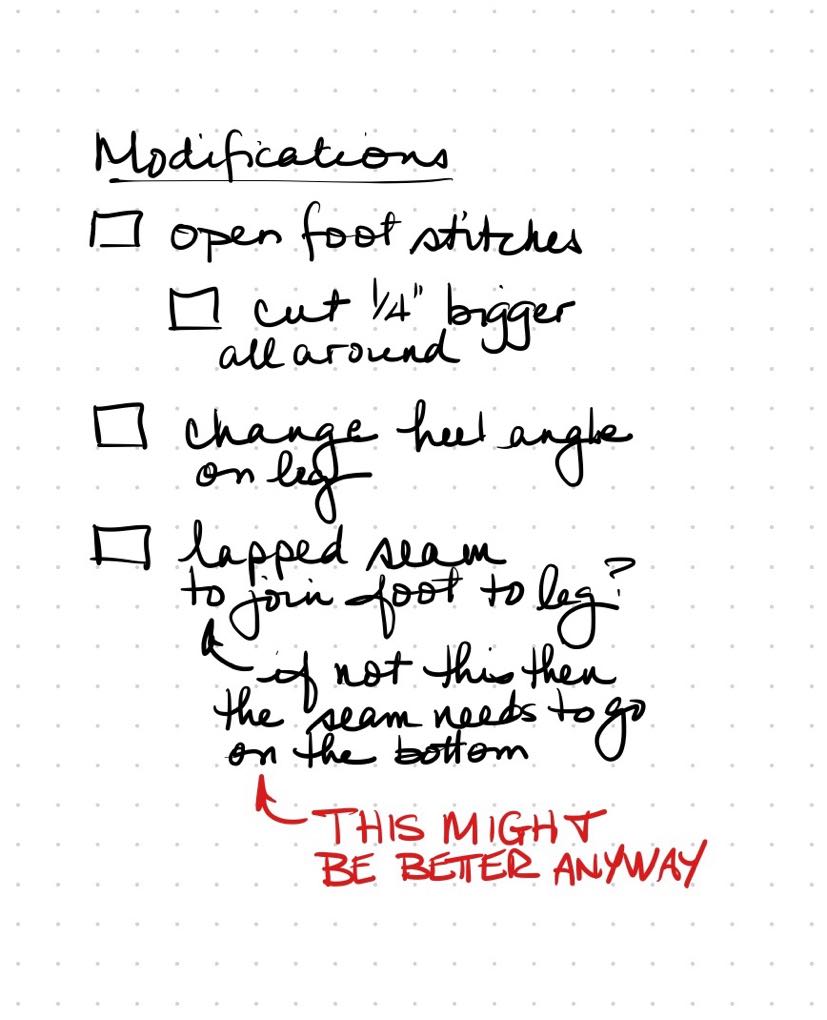 Modifications
open foot stitches
cut 1/4" bigger
all around
change heel angle
on leg
lapped seam
to join foot to leg?
if not this then
the seam needs to go
on the bottom
THIS MIGHT
BE BETTER ANYWAY